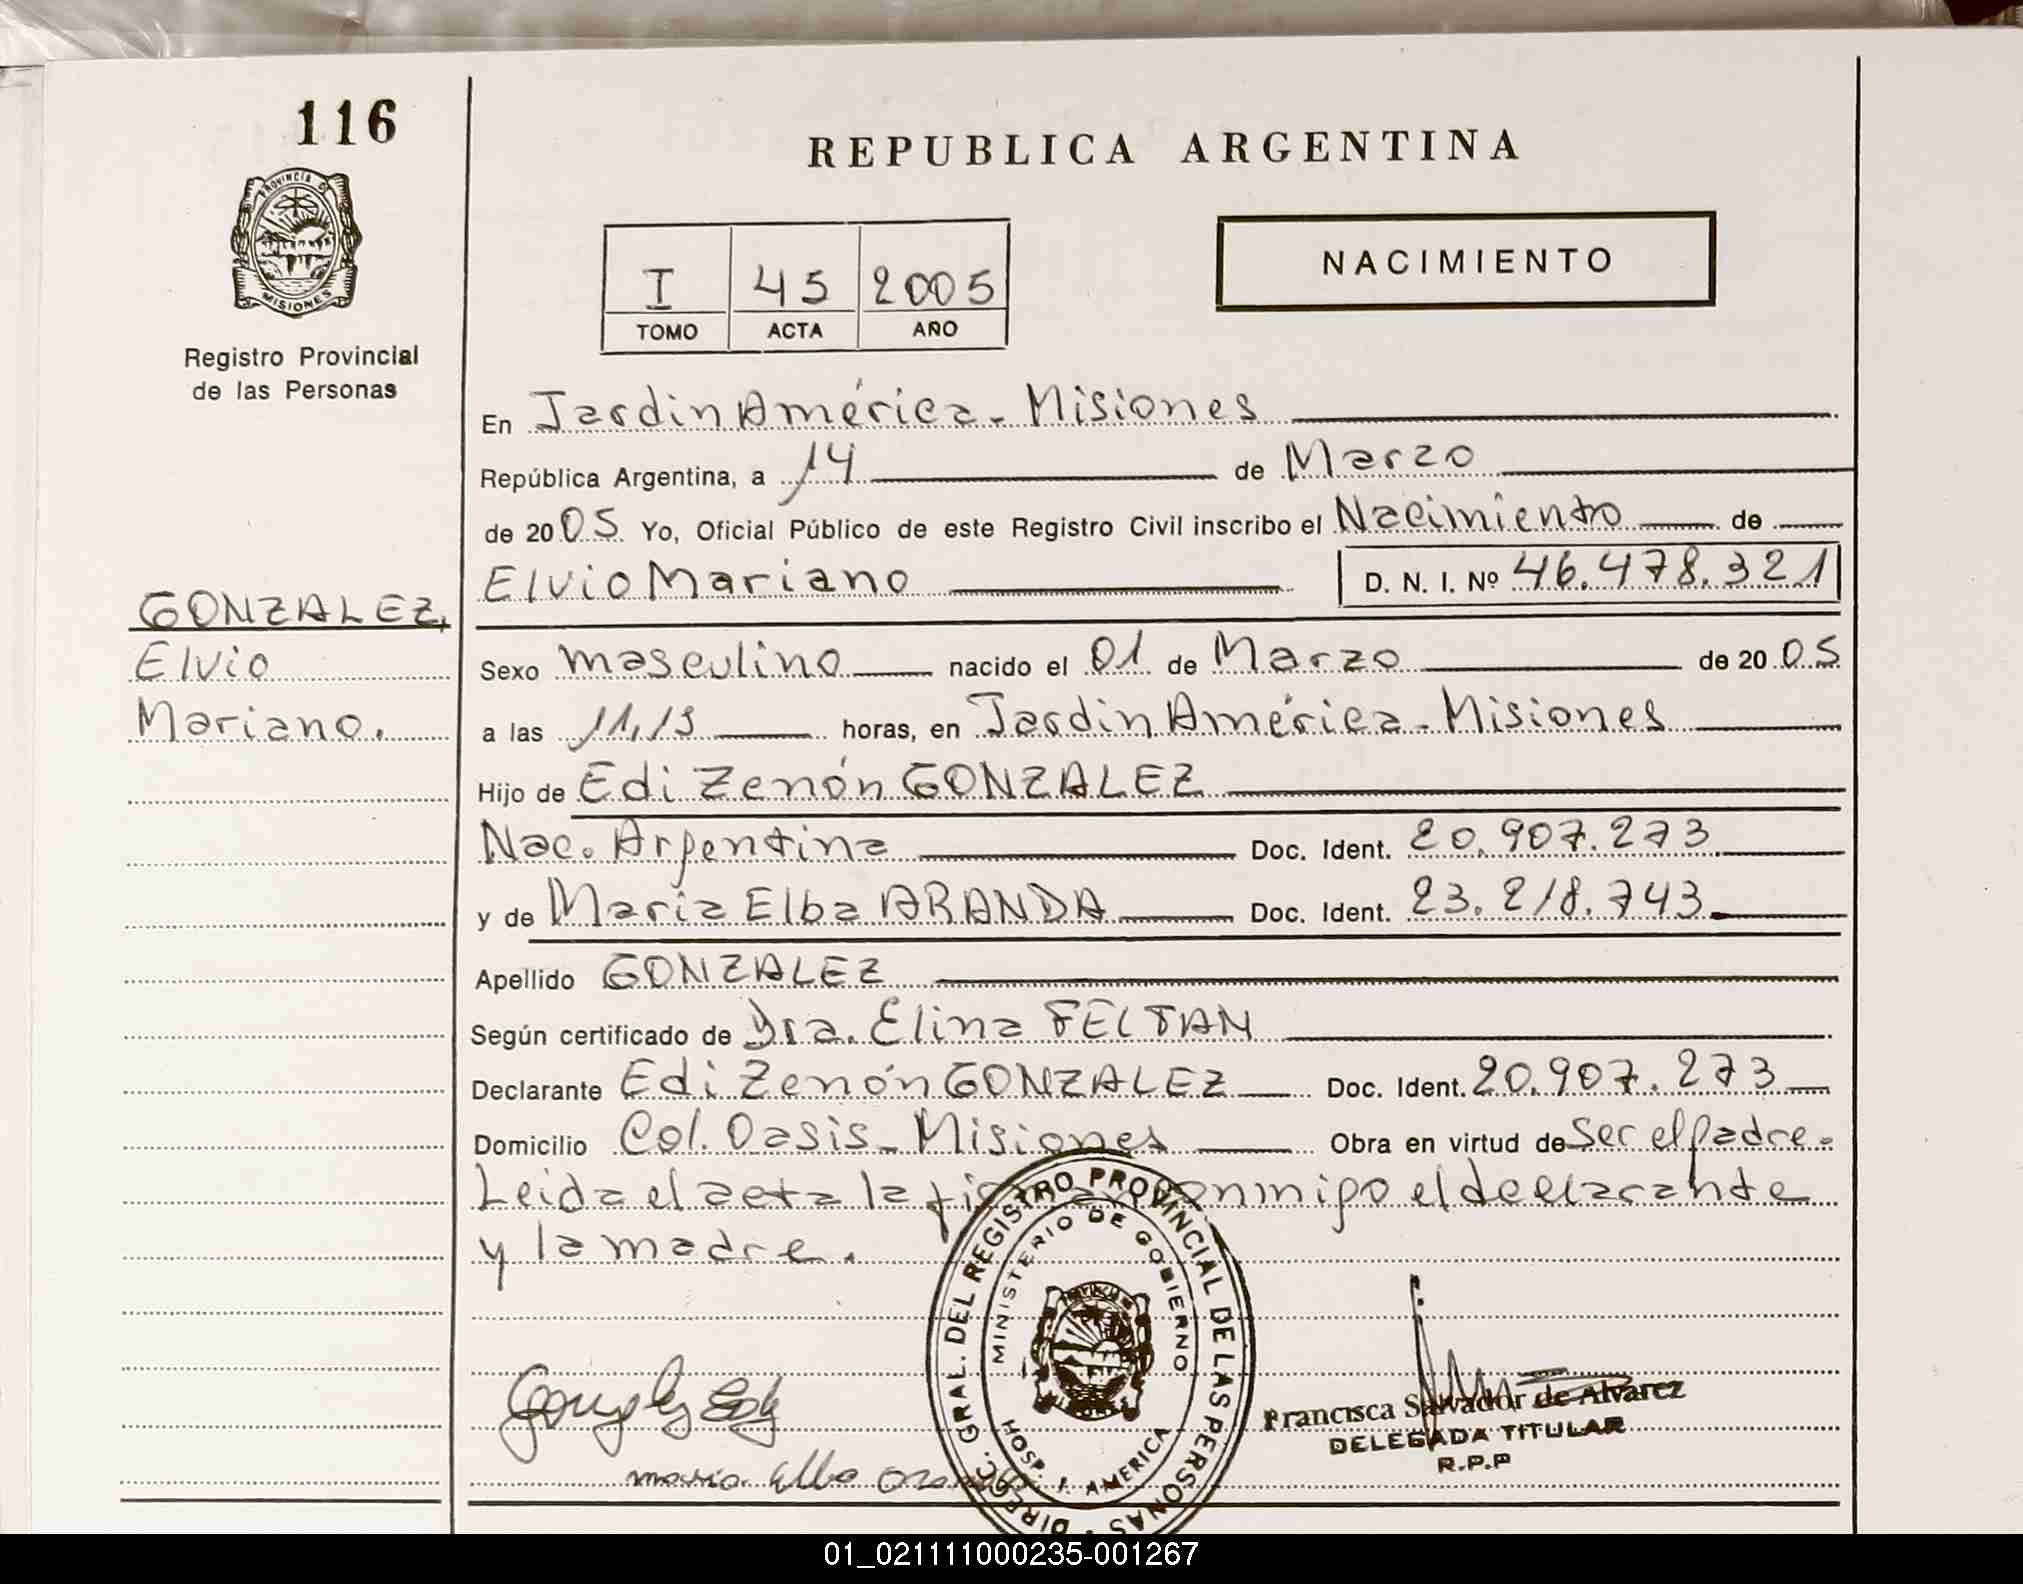 116
REPUBLICA ARGENTINA
PROVINCIA DE
MISIONES
Registro Provincial
de las Personas
I 45 2005
TOMO ACTA AÑO
NACIMIENTO
En Jardin América - Misiones
República Argentina, a 14 de Marzo
de 2005 Yo, Oficial Público de este Registro Civil inscribo el Nacimiento de
Elvio Mariano D. N. I. Nº 46.478.321
GONZALEZ,
Elvio
Mariano.
Sexo masculino nacido el 01 de Marzo de 2005
a las horas, en Jardin América - Misiones
Hijo de Edi Zenón GONZALEZ
Nac. Argentina Doc. Ident. 20.907.273
y de Maria Elba ARANDA Doc. Ident. 23.218.743
Apellido GONZALEZ
Según certificado de Dra. Elina FELTAN
Declarante Edi Zenón GONZALEZ Doc. Ident. 20.907.273
Domicilio Col. Oasis - Misiones Obra en virtud de Ser el padre.
Leida el acta la conmigo el declarante
y la madre.
DIREC. GRAL. DEL REGISTRO PROVINCIAL DE LAS PERSONAS
MINISTERIO DE GOBIERNO
HOSP. J. AMERICA
Francisca Salvador de Alvarez
DELEGADA TITULAR
R.P.P
maria Elba
01_021111000235-001267